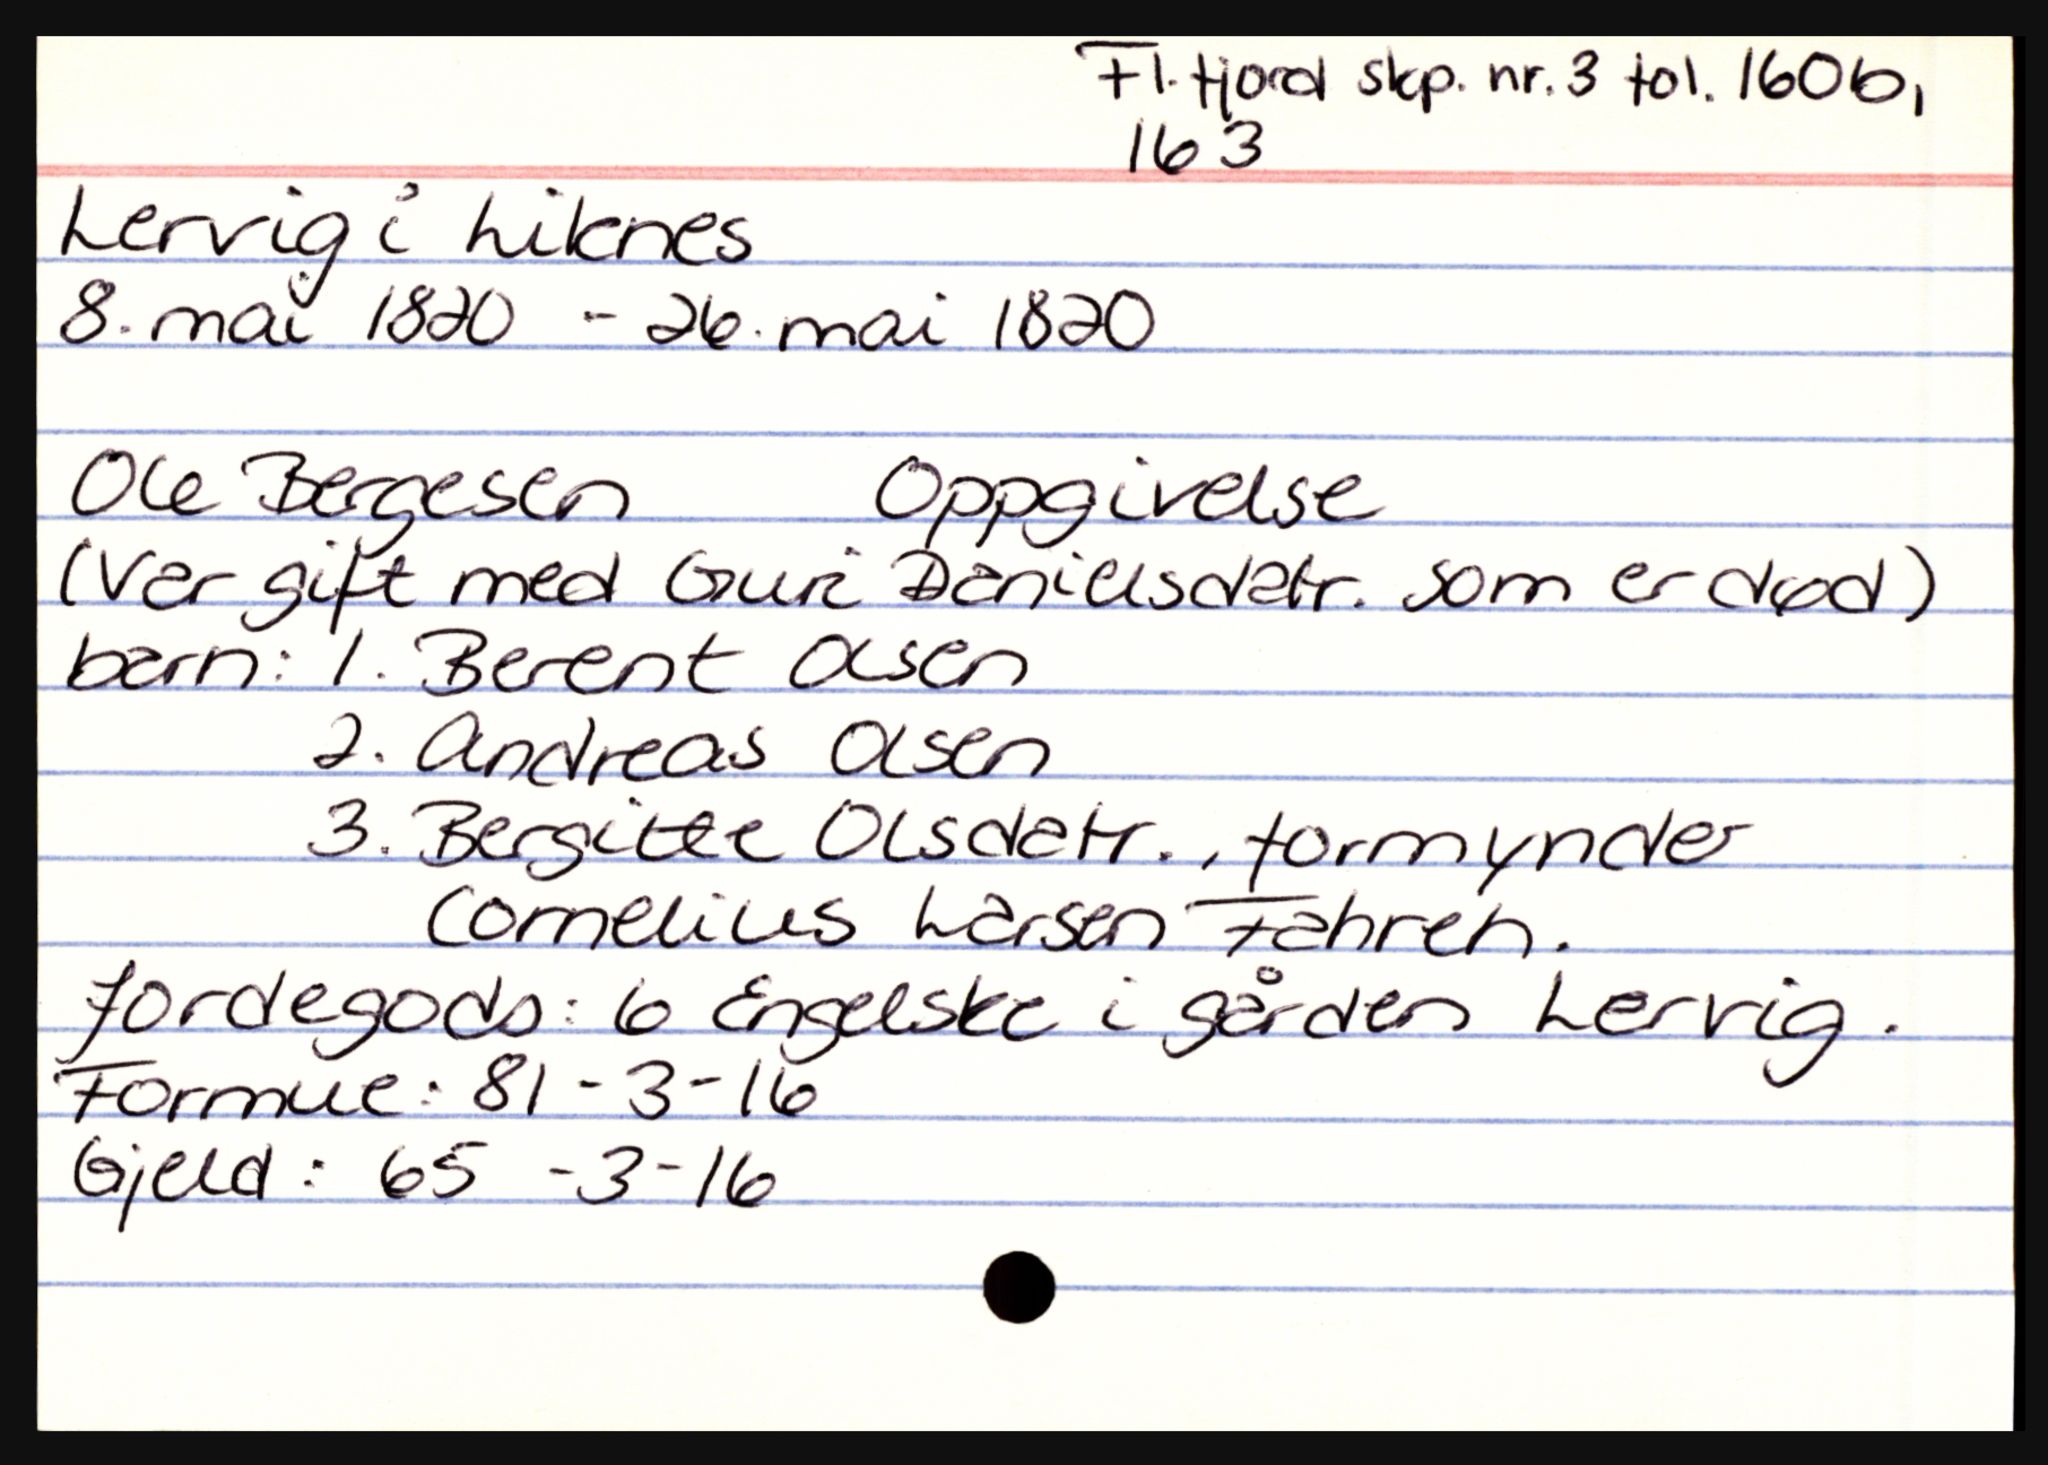 Fl.fjord skp. nr. 3 fol. 160b,
163
Lervig i Liknes
8. mai 1820 - 26. mai 1820
Ole Bergesen Oppgivelse
(Var gift med Guri Danielsdatr. som er død)
barn: 1. Berent Olsen
2. Andreas Olsen
3. Bergitte Olsdatr., formynder
Cornelius Larsen Fahren.
Jordegods: 6 Engelske i gården Lervig.
Formue: 81-3-16
Gjeld: 65-3-16